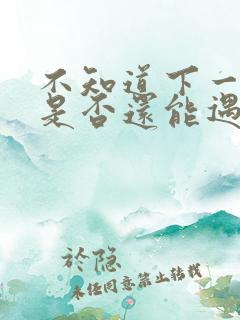 不知道下一
是否還能遇
於隐
未经同意禁止转载